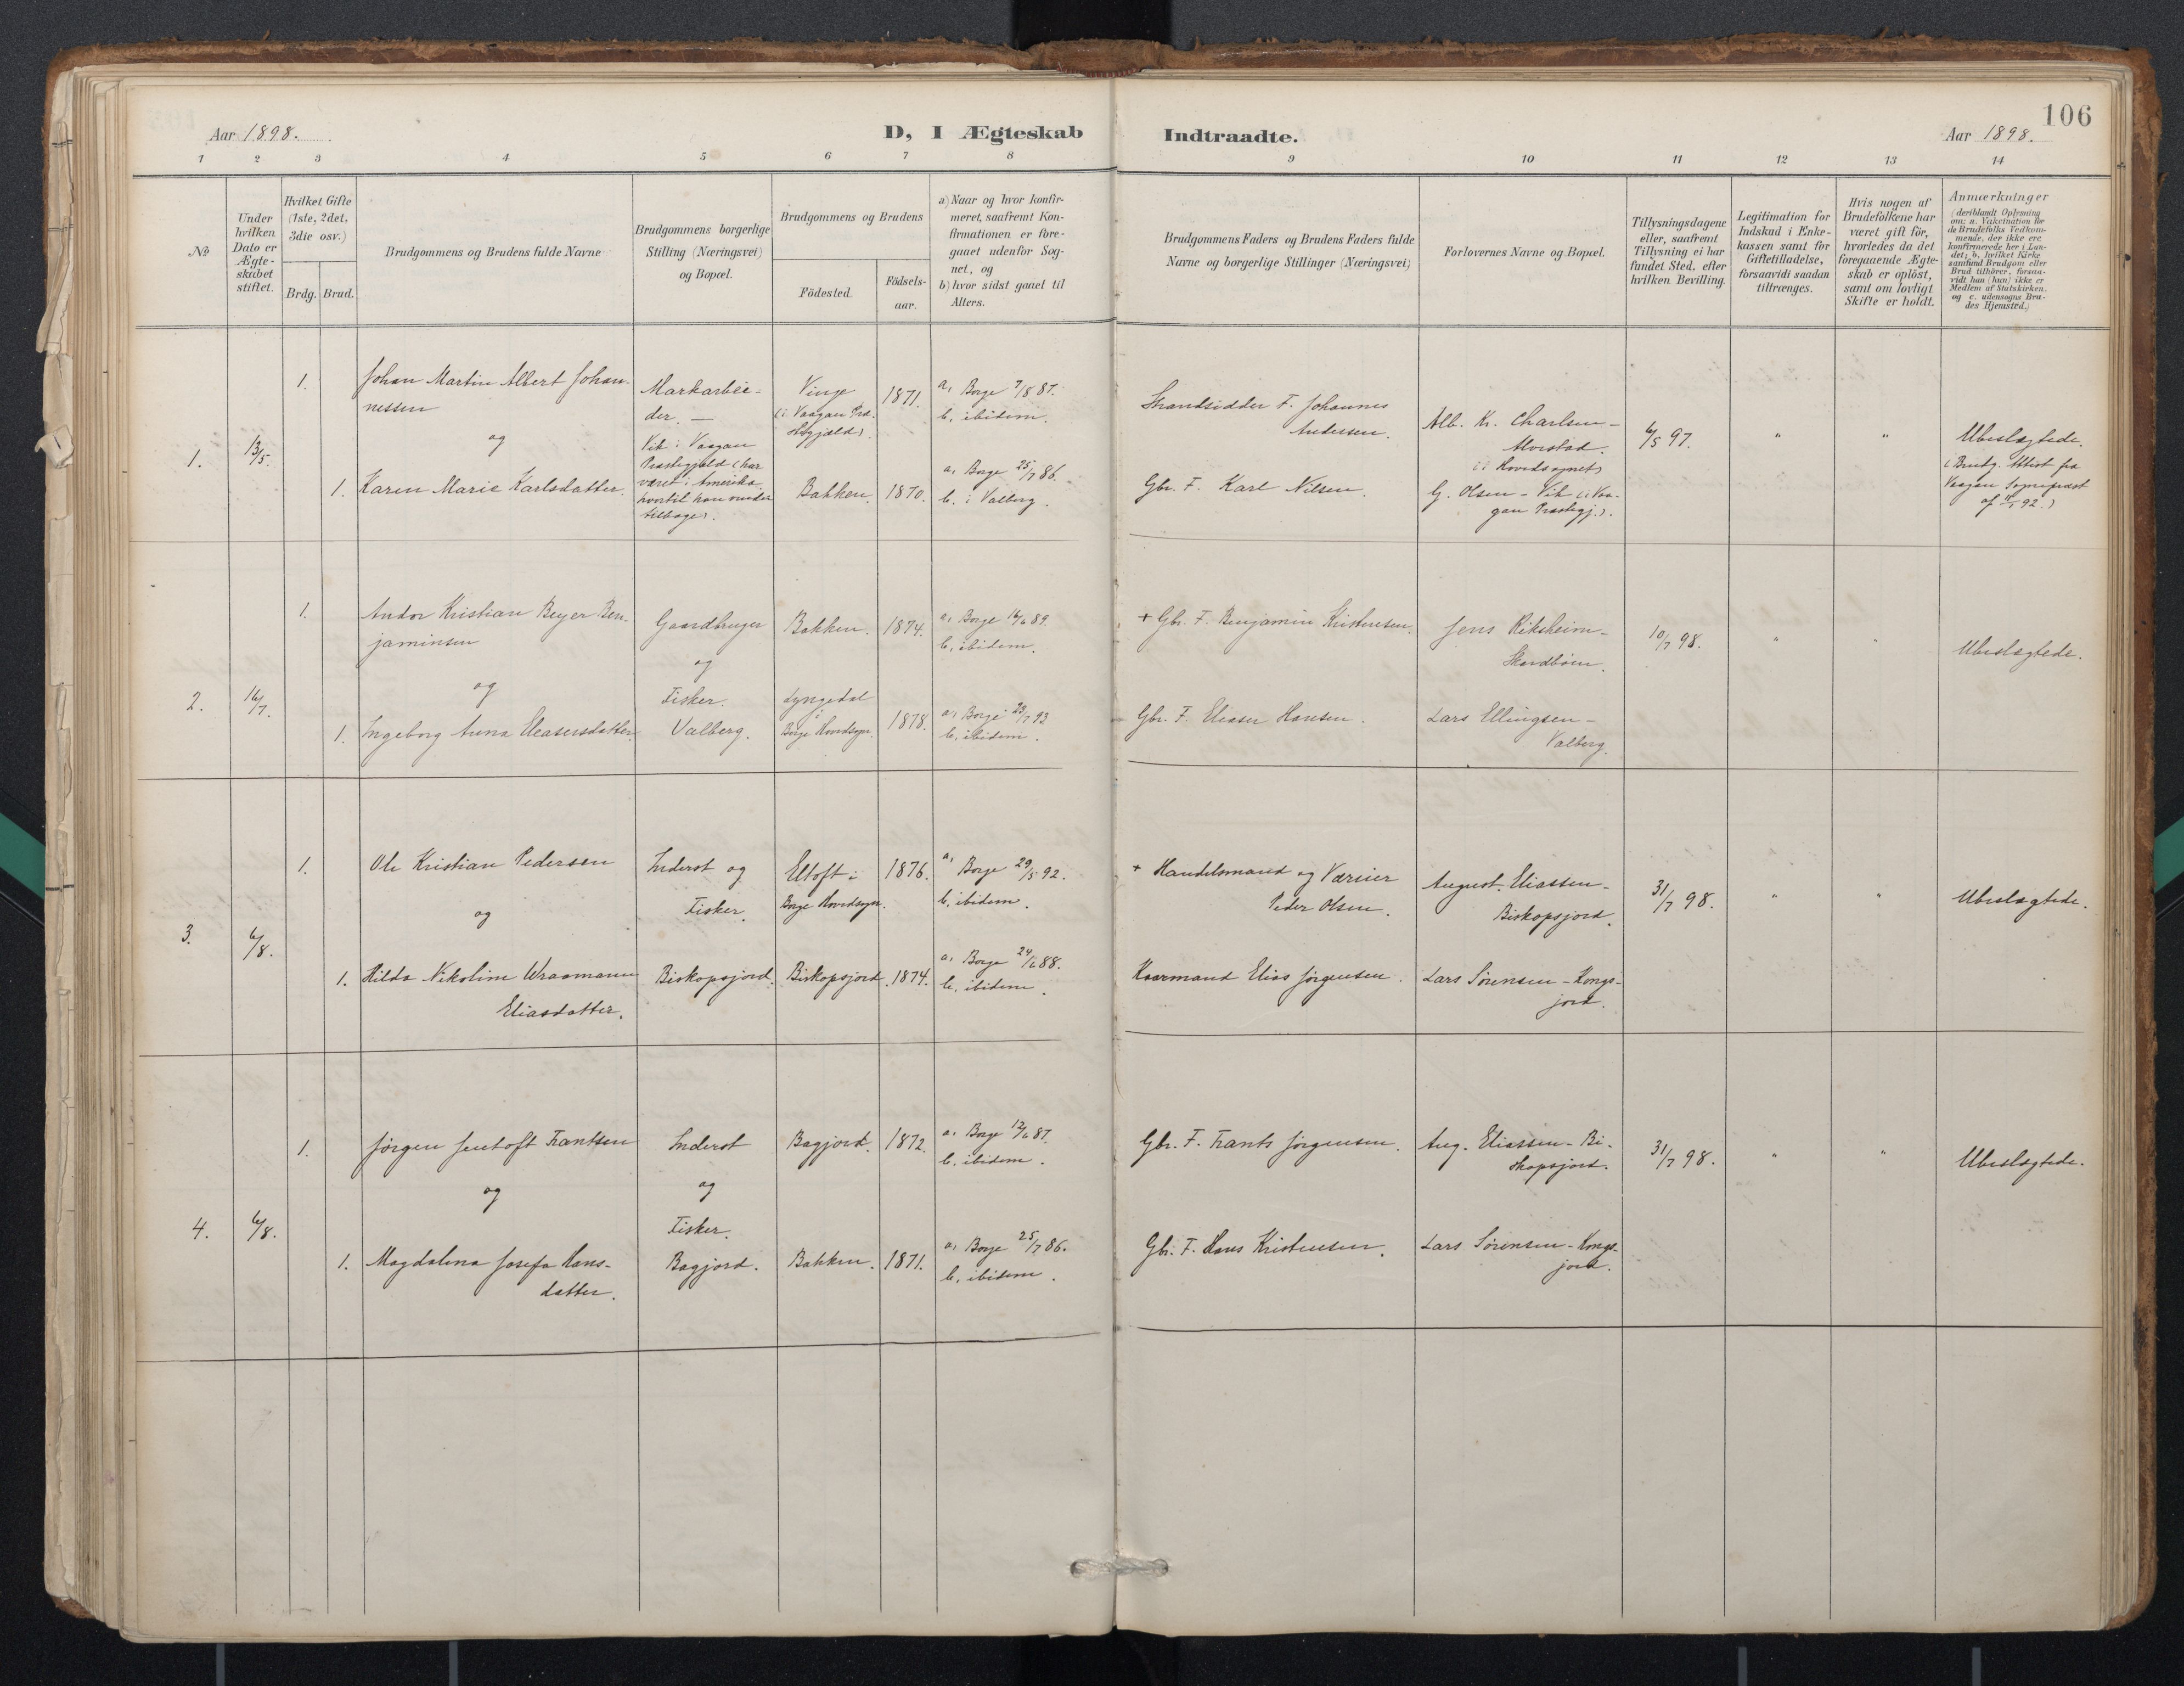 106
Aar 1898.
D, I Ægteskab
Indtraadte.
Aar 1898.
1 2 3 4 5 6 7 8 9 10 11 12 13 14
№
Under
hvilken
Dato er
Ægte-
skabet
stiftet.
Hvilket Gifte
(1ste, 2det,
3die osv.)
Brdg. Brud.
Brudgommens og Brudens fulde Navne
Brudgommens borgerlige
Stilling (Næringsvei)
og Bopæl.
Brudgommens og Brudens
Födested.
Födsels-
aar.
a) Naar og hvor konfir-
meret, saafremt Kon-
firmationen er fore-
gaaet udenfor Sog-
net, og
b) hvor sidst gaaet til
Alters.
Brudgommens Faders og Brudens Faders fulde
Navne og borgerlige Stillinger (Næringsvei)
Forlovernes Navne og Bopæl.
Tillysningsdagene
eller, saafremt
Tillysning ei har
fundet Sted, efter
hvilken Bevilling.
Legitimation for
Indskud i Enke-
kassen samt for
Giftetilladelse,
forsaavidt saadan
tiltrænges.
Hvis nogen af
Brudefolkene har
været gift för,
hvorledes da det
foregaaende Ægte-
skab er oplöst,
samt om lovligt
Skifte er holdt.
Anmærkninger
(deriblandt Oplysning
om: a. Vakcination for
de Brudefolks Vedkom-
mende, der ikke ere
konfirmerede her i Lan-
det; b. hvilket Kirke
samfund Brudgom eller
Brud tilhörer, forsaa-
vidt han (hun) ikke er
Medlem af Statskirken.
og c. udensogns Bru-
des Hjemsted.)
1.
13/5.
1.
Johan Martin Albert Johan-
nessen
og
1. Karen Marie Karlsdatter.
Markarbei-
der. —
Vik i Vaagan
Præstegjeld (har
været i Amerika,
hvortil han vender
tilbage).
Vinje
(i Vaagan Præ-
stegjæld).
1871.
a, Borge 7/8 87.
b, ibidem.
Bakken. 1870.
a, Borge 25/7 86.
b. i Valberg.
Strandsidder F. Johannes
Andersen.
Gbr. F. Karl Nilsen.
Alb. Kr. Charlsen -
Morstad.
(i Hovedsognet)
G. Olsen - Vik (i Vaa-
gan Præstegj.).
6/5 97.
"
"
Ubeslægtede.
(Brudg. Attest fra
Vaagan Sognepræst
92.)
2.
16/7.
1.
Andor Kristian Beyer Ben-
jaminsen
og
1. Ingeborg Anna Eleasersdatter.
Gaardbruger
og
Fisker.
Valberg.
Bakken. 1874.
a, Borge 16/6 89.
b, ibidem.
Lyngedal
i
Borge Hovedsogn.
1878.
a, Borge 23/7 93
b, ibidem.
+ Gbr. F. Benjamin Kristensen.
Gbr. F. Eleaser Hansen.
Jens Riksheim -
Lars Ellingsen -
Valberg.
10/7 98.
"
"
Ubeslægtede.
3.
6/8.
1.
Ole Kristian Pedersen
og
1. Hilda Nikoline Wraamann
Eliasdatter.
Inderst og
Fisker.
Biskopsjord.
Eltoft i
Borge Hovedsogn.
1876.
a, Borge 29/5 92.
b, ibidem.
Biskopsjord. 1874.
a, Borge 24/6 88.
b, ibidem.
+ Handelsmand og Væreier
Peder Olsen.
Kaarmand Elias Jørgensen.
August Eliassen -
Biskopsjord.
Lars Sørensen - Kongs-
jord.
31/7 98.
"
"
Ubeslægtede.
4.
6/8.
1.
Jørgen Jentoft Frantsen
og
1. Magdalena Josefa Hans-
datter.
Inderst
og
Fisker.
Bagjord.
Bagjord. 1872.
a, Borge 12/6 87.
b, ibidem.
Bakken. 1871.
a, Borge 25/7 86.
b, ibidem.
Gbr. F. Frants Jørgensen.
Gbr. F. Hans Kristensen.
Aug. Eliassen - Bi-
skopsjord.
Lars Sørensen - Kongs-
jord.
31/7 98.
"
"
Ubeslægtede.